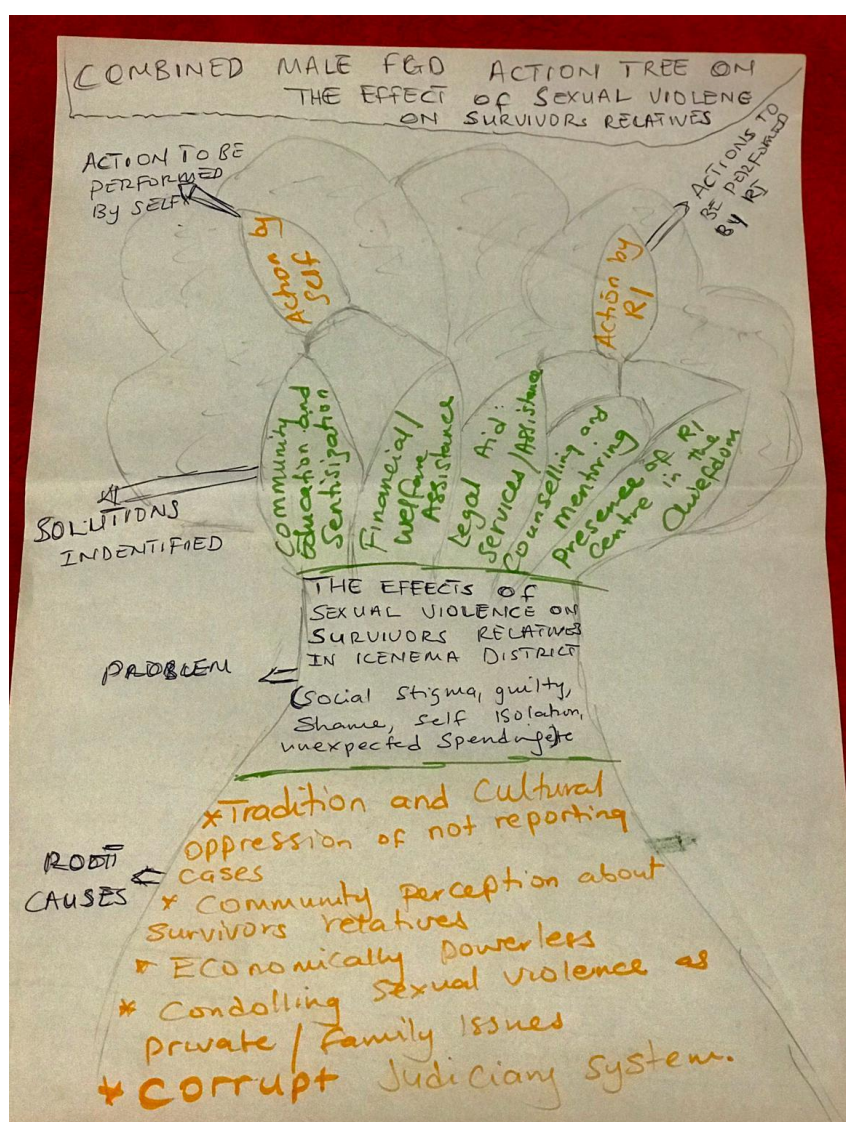 COMBINED MALE FGD ACTION TREE ON
THE EFFECT OF SEXUAL VIOLENE
ON SURVIVORS RELATIVES
ACTION TO BE
PERFORMED
By SELF
ACTIONS TO
BE PERFORMED
By RI
Action by
Self
Action by
RI
Community
Education and
Sentisization
Financial/
Welfare
Assistance
Legal Aid:
Services/Assistance
Counselling and
mentoring
Presence of RI
centre in the
Chiefdom
SOLUTIONS
INDENTIFIED
THE EFEECTS OF
SEXUAL VIOLENCE ON
SURVIVORS RELATIVES
IN KENEMA DISTRICT
(Social stigma, guilty,
Shame, self isolation,
unexpected spending etc
PROBLEM
*Tradition and Cultural
oppression of not reporting
cases
* Community perception about
survivors relatives
* Economically powerless
* Condolling Sexual violence as
private / family Issues
* Corrupt Judiciary system.
ROOT
CAUSES